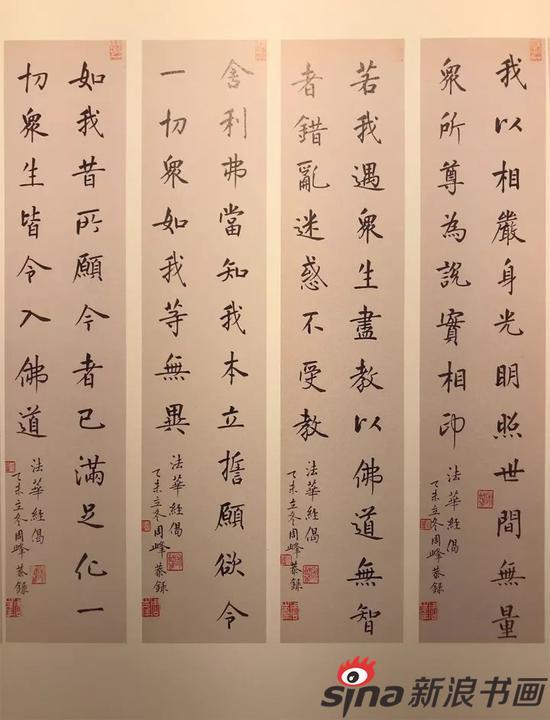 我以相嚴身光明照世間無量
衆所尊為說實相印
法華經偈
乙未立冬周峰恭錄
若我遇衆生盡教以佛道無智
者錯亂迷惑不受教
法華經偈
乙未立冬周峰恭錄
舍利弗當知我本立誓願欲令
一切衆如我等無異
法華經偈
乙未立冬周峰恭錄
如我昔所願今者已滿足化一
切衆生皆令入佛道
法華經偈
乙未立冬周峰恭錄
sina 新浪书画